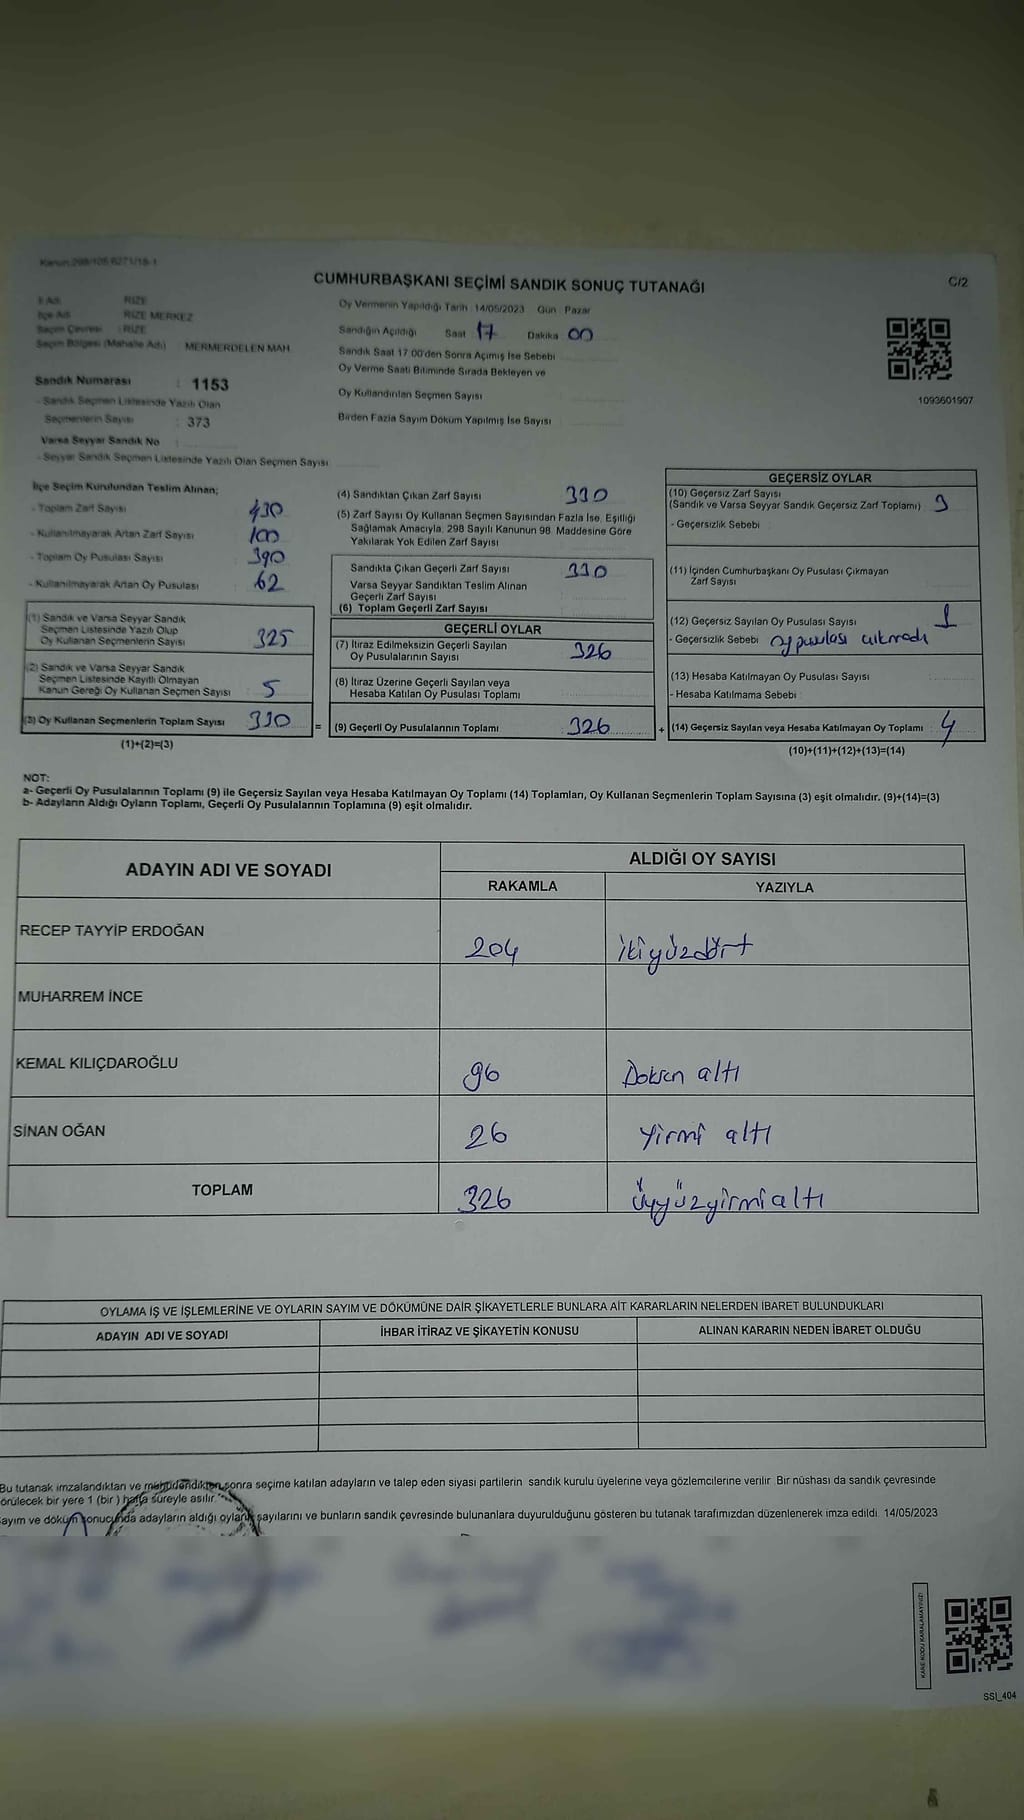 Kanun:298/105,6271/18-1
CUMHURBAŞKANI SEÇİMİ SANDIK SONUÇ TUTANAĞI
C/2
İl Adı RİZE
İlçe Adı RİZE MERKEZ
Seçim Çevresi : RİZE
Seçim Bölgesi (Mahalle Adı) MERMERDELEN MAH
Sandık Numarası : 1153
- Sandık Seçmen Listesinde Yazılı Olan
Seçmenlerin Sayısı : 373
Varsa Seyyar Sandık No :
- Seyyar Sandık Seçmen Listesinde Yazılı Olan Seçmen Sayısı
Oy Vermenin Yapıldığı Tarih : 14/05/2023 Gün : Pazar
Sandığın Açıldığı Saat 17 Dakika 00
Sandık Saat 17:00'den Sonra Açımış İse Sebebi
Oy Verme Saati Bitiminde Sırada Bekleyen ve
Oy Kullandırılan Seçmen Sayısı
Birden Fazla Sayım Döküm Yapılmış İse Sayısı
1093601907
İlçe Seçim Kurulundan Teslim Alınan;
- Toplam Zarf Sayısı 430
- Kullanılmayarak Artan Zarf Sayısı 100
- Toplam Oy Pusulası Sayısı 390
- Kullanılmayarak Artan Oy Pusulası 62
(1) Sandık ve Varsa Seyyar Sandık
Seçmen Listesinde Yazılı Olup
Oy Kullanan Seçmenlerin Sayısı 325
(2) Sandık ve Varsa Seyyar Sandık
Seçmen Listesinde Kayıtlı Olmayan
Kanun Gereği Oy Kullanan Seçmen Sayısı 5
(3) Oy Kullanan Seçmenlerin Toplam Sayısı 330
(1)+(2)=(3)
(4) Sandıktan Çıkan Zarf Sayısı 330
(5) Zarf Sayısı Oy Kullanan Seçmen Sayısından Fazla İse, Eşitliği
Sağlamak Amacıyla, 298 Sayılı Kanunun 98. Maddesine Göre
Yakılarak Yok Edilen Zarf Sayısı
Sandıkta Çıkan Geçerli Zarf Sayısı 330
Varsa Seyyar Sandıktan Teslim Alınan
Geçerli Zarf Sayısı
(6) Toplam Geçerli Zarf Sayısı
GEÇERLİ OYLAR
(7) İtiraz Edilmeksizin Geçerli Sayılan
Oy Pusulalarının Sayısı 326
(8) İtiraz Üzerine Geçerli Sayılan veya
Hesaba Katılan Oy Pusulası Toplamı
= (9) Geçerli Oy Pusulalarının Toplamı 326
GEÇERSİZ OYLAR
(10) Geçersiz Zarf Sayısı
(Sandık ve Varsa Seyyar Sandık Geçersiz Zarf Toplamı) 3
- Geçersizlik Sebebi
(11) İçinden Cumhurbaşkanı Oy Pusulası Çıkmayan
Zarf Sayısı
(12) Geçersiz Sayılan Oy Pusulası Sayısı 1
- Geçersizlik Sebebi oy pusulası çıkmadı
(13) Hesaba Katılmayan Oy Pusulası Sayısı
- Hesaba Katılmama Sebebi
+ (14) Geçersiz Sayılan veya Hesaba Katılmayan Oy Toplamı 4
(10)+(11)+(12)+(13)=(14)
NOT:
a- Geçerli Oy Pusulalarının Toplamı (9) ile Geçersiz Sayılan veya Hesaba Katılmayan Oy Toplamı (14) Toplamları, Oy Kullanan Seçmenlerin Toplam Sayısına (3) eşit olmalıdır. (9)+(14)=(3)
b- Adayların Aldığı Oyların Toplamı, Geçerli Oy Pusulalarının Toplamına (9) eşit olmalıdır.
ADAYIN ADI VE SOYADI
ALDIĞI OY SAYISI
RAKAMLA YAZIYLA
RECEP TAYYİP ERDOĞAN 204 ikiyüzdört
MUHARREM İNCE
KEMAL KILIÇDAROĞLU 96 Doksan altı
SİNAN OĞAN 26 Yirmi altı
TOPLAM 326 üçyüzyirmialtı
OYLAMA İŞ VE İŞLEMLERİNE VE OYLARIN SAYIM VE DÖKÜMÜNE DAİR ŞİKAYETLERLE BUNLARA AİT KARARLARIN NELERDEN İBARET BULUNDUKLARI
ADAYIN ADI VE SOYADI İHBAR İTİRAZ VE ŞİKAYETİN KONUSU ALINAN KARARIN NEDEN İBARET OLDUĞU
Bu tutanak imzalandıktan ve mühürlendikten sonra seçime katılan adayların ve talep eden siyasi partilerin sandık kurulu üyelerine veya gözlemcilerine verilir. Bir nüshası da sandık çevresinde
örülecek bir yere 1 (bir) hafta süreyle asılır.
ayım ve döküm sonucunda adayların aldığı oyların sayılarını ve bunların sandık çevresinde bulunanlara duyurulduğunu gösteren bu tutanak tarafımızdan düzenlenerek imza edildi. 14/05/2023
KARE KODU KARALAMAYINIZ!
SSİ_404